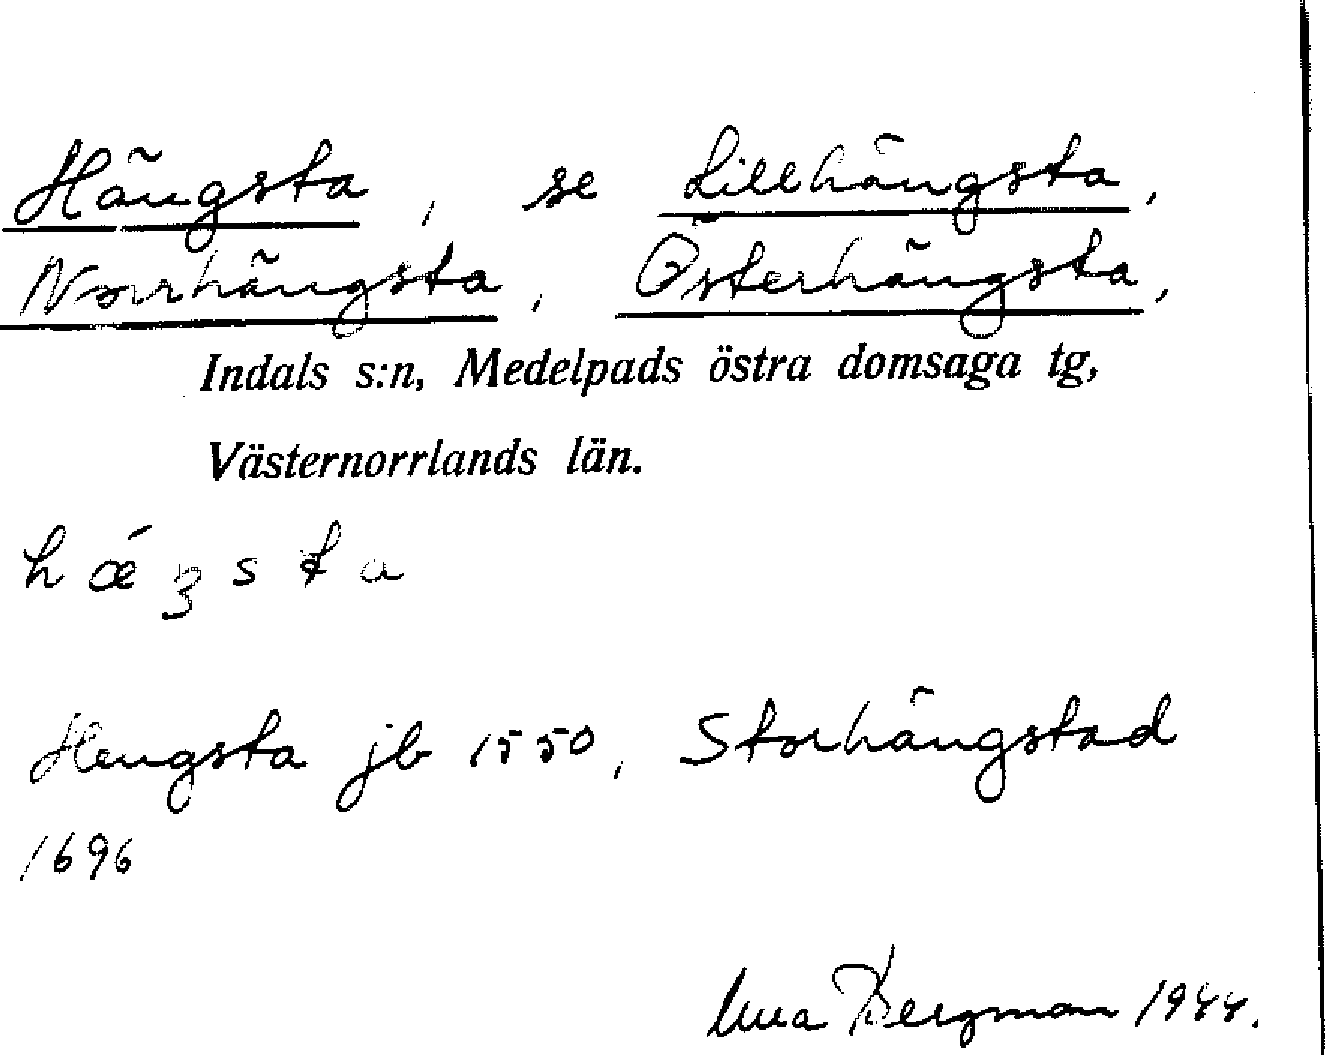 Hängsta, se Lillhängsta,
Norrhängsta, Österhängsta,
Indals s:n, Medelpads östra domsaga tg,
Västernorrlands län.
hǽʒsta
Hengsta jb 1550, Storhängstad
1696
Bergman 1944.